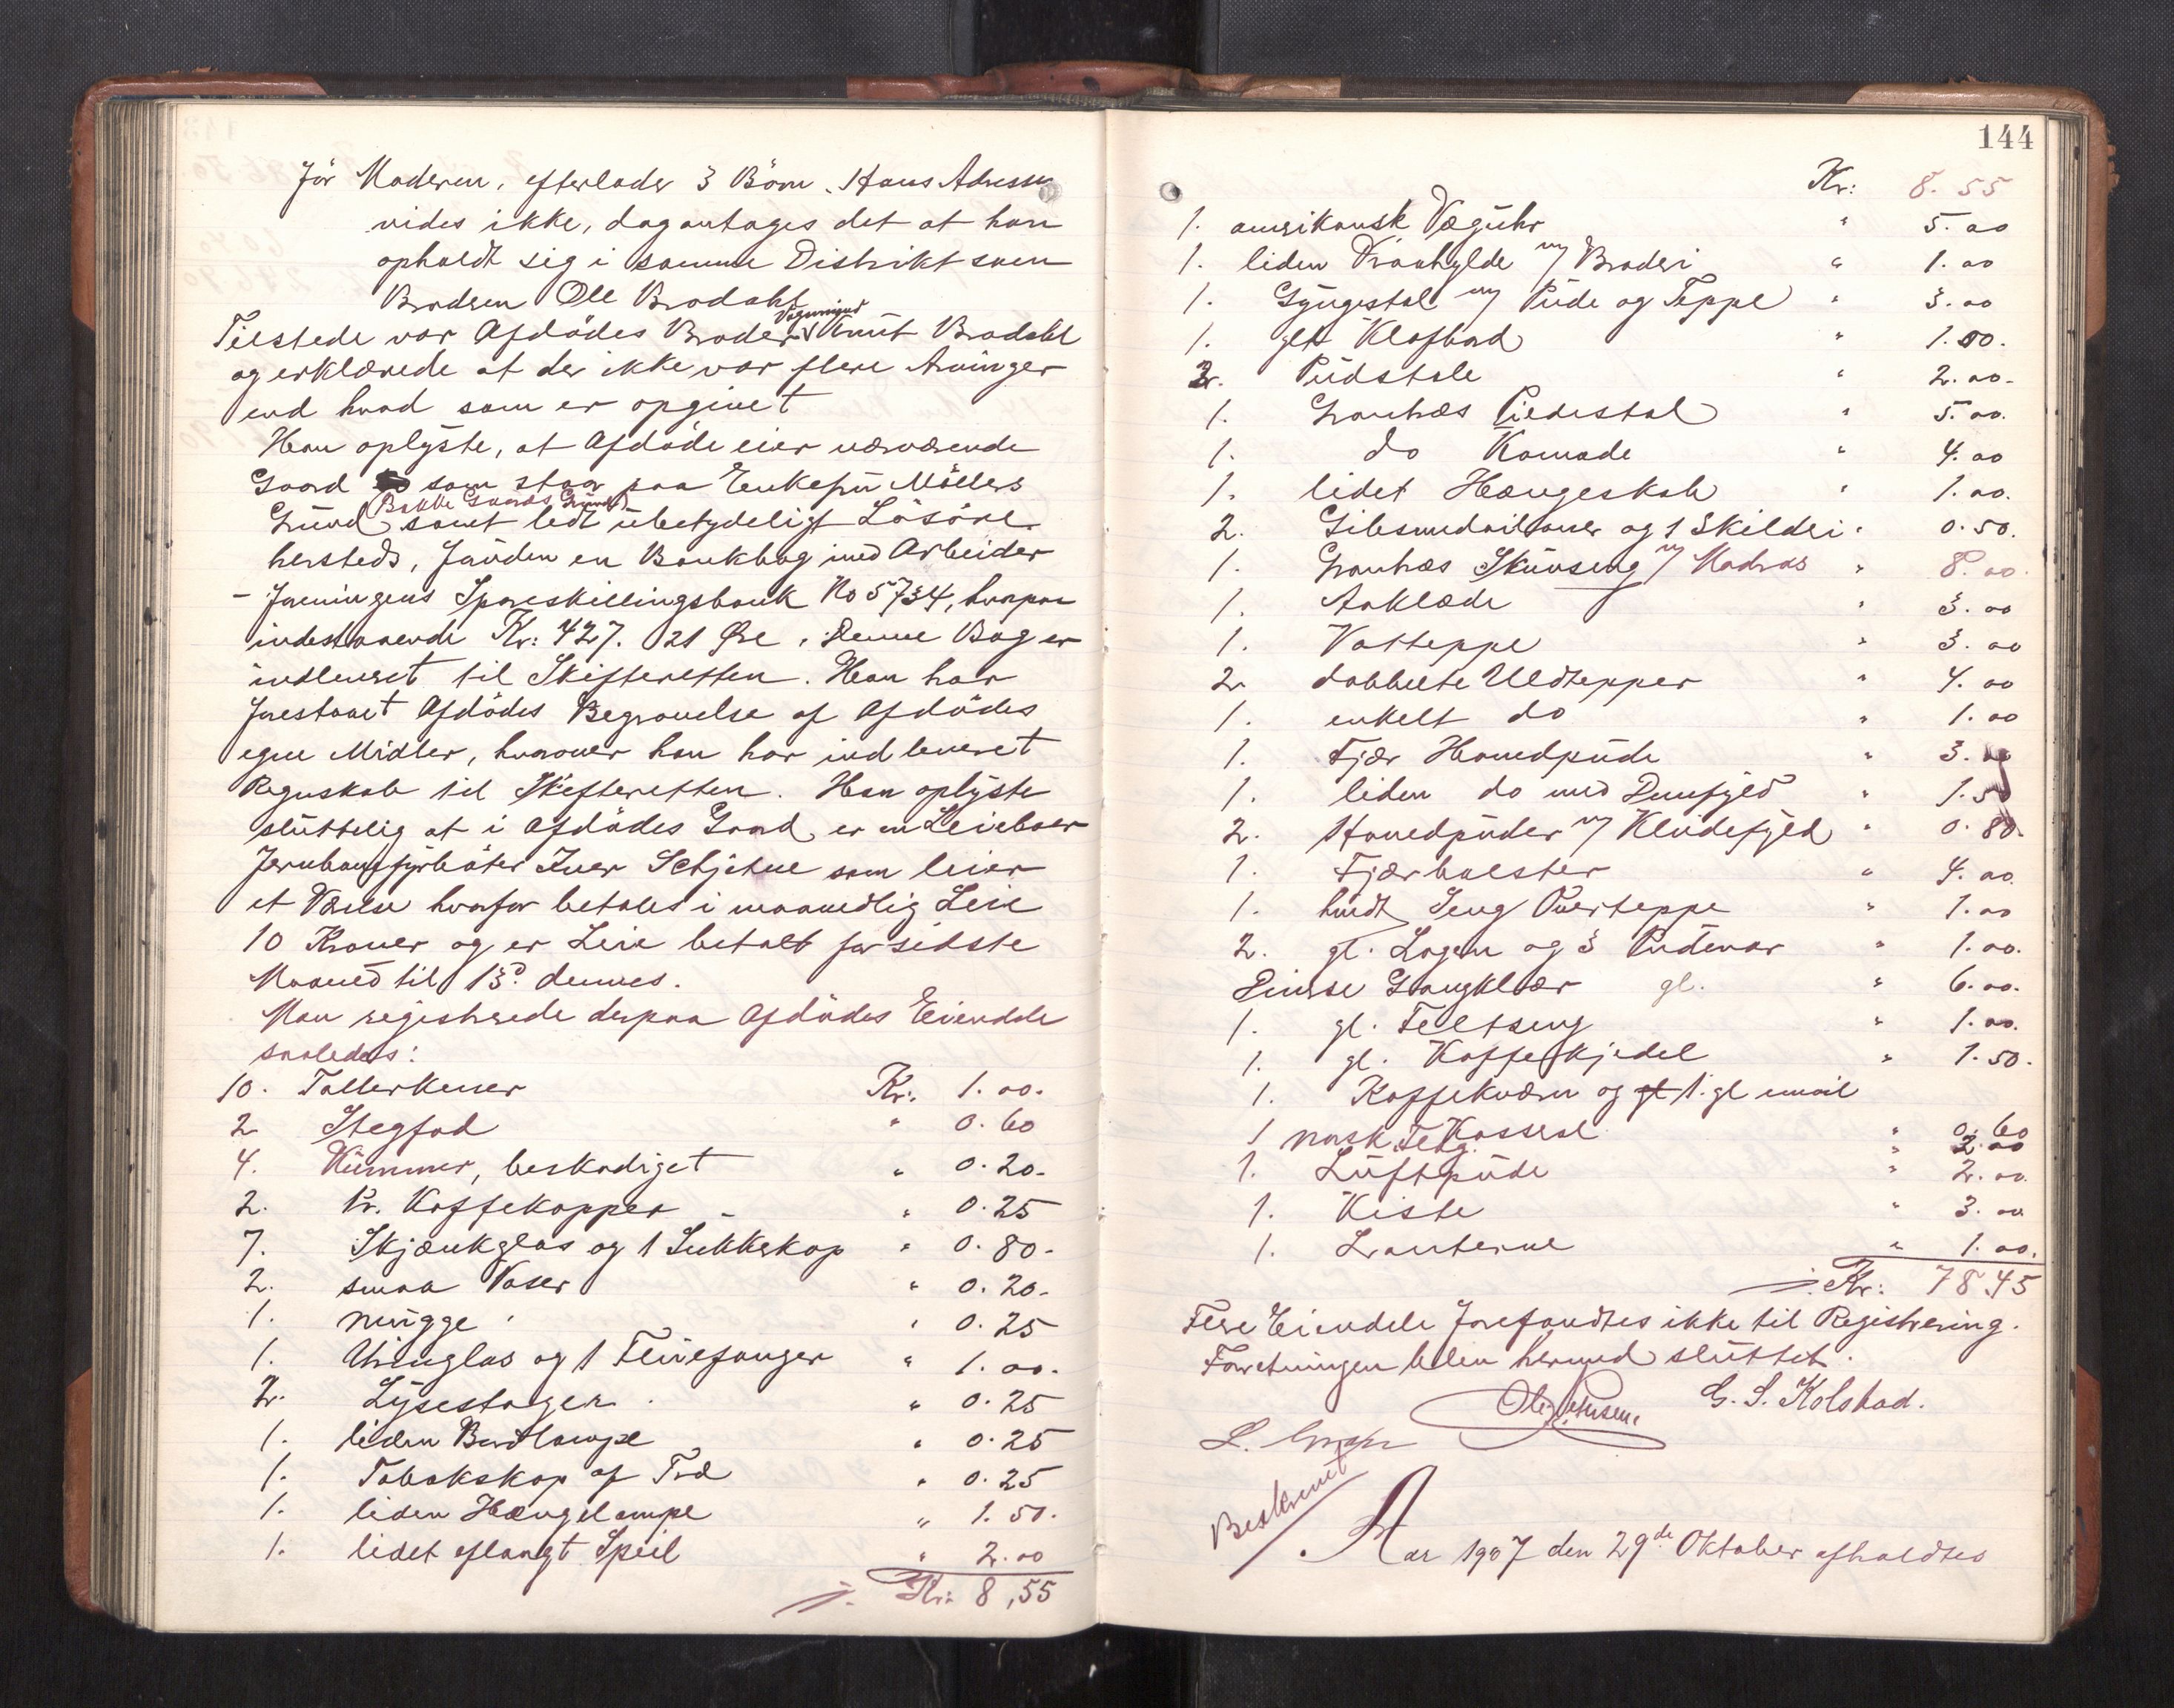 før Moderen, efterlader 3 Børn. Hans Adresse
vides ikke, dog antages det at han
opholdt sig i samme Distrikt som
Broderen Ole Brodahl
Vognmand
Tilstede var Afdødes Broder Knut Brodahl
og erklærede at der ikke var flere Arvinger
end hvad som er opgivet
Han oplyste, at Afdøde eier nærværende
Gaard som staar paa Enkefru Møllers
Bakke Gaards Grund
Grund samt lidt ubetydeligt Løsøre
hersteds, foruden en Bankbog med Arbeider
-foreningens Spareskillingsbank No 5734, hvorpaa
indestaaende Kr: 427. 21 Øre. Denne Bog er
indleveret til Skifteretten. Han har
forestaaet Afdødes Begravelse af Afdødes
egne Midler, hvorover han har indleveret
Regnskab til Skifteretten. Han oplyste
sluttelig at i Afdødes Gaard er en Leieboer
Jernbanefyrbøter Iver Schjetne som leier
et Værelse hvorfor betales i maanedlig Leie
10 Kroner og er Leie betalt for sidste
Maaned til 13d dennes.
Man registrerede derpaa Afdødes Eiendele
saaledes:
10. Tallerkener Kr: 1.00.
2 Stegfad " 0.60
4. Kummer, beskadiget " 0.20.
2. Pr. Kaffekopper - " 0.25
7. Skjænkglas og 1 Sukkekop " 0.80.
2. smaa Vaser " 0.20.
1. mugge " 0.25
1. Ølseuglas og 1 Fluefanger " 1.00.
2. Lysestager " 0.25
1. liden Bordlampe " 0.25
1. Tobakskop af Træ " 0.25
1. liden Hængelampe " 1.50.
1. lidet aflangt Speil " 2.00
Kr: 8,55
144
Kr: 8.55
1. amerikansk Væguhr " 5.00
1. liden Kraahylde m/ Broderi " 1.00
1. Gyngestol m/ Pude og Teppe " 3.00
1. glt Klafbord " 1.00.
2. Pudstole " 2.00.
1. Grantræs Piedestal " 5.00.
1. do Komode " 4.00
1. lidet Hængeskab " 1.00.
2. Gibsmedailoner og 1 Skilderi " 0.50.
1. Grantræs Skuvseng m/ Madras " 8.00.
1. Aaklæde " 3.00
1. Vatteppe " 3.00
2 dobbelte Uldtepper " 4.00
1. enkelt do " 1.00
1. Fjær Hovedpude " 3.00
1. liden do med Dunfyld " 1.50
2. Hovedpuder m/ Kludefyld " 0.80.
1. Fjærbolster " 4.00.
1. hvidt Seng Overteppe " 1.00
2. gl. Lagen og 3 Pudevar " 1.00.
Diverse Gangklær gl. " 6.00.
1. gl. Feltseng " 1.00.
1. gl. Kaffekjedel " 1.50.
1. Kaffekværn og gl 1. gl email
Kasserol " 0.60
1 norsk Flag. " 2.00
1. Luftpude " 2.00.
1. Kiste " 3.00
1. Lanterne " 1.00.
Kr: 78,45
Flere Eiendele forefandtes ikke til Registrering.
Forretningen blev hermed sluttet.
G. S. Kolstad.
Beskrevet
Aar 1907 den 29de Oktober afholdtes